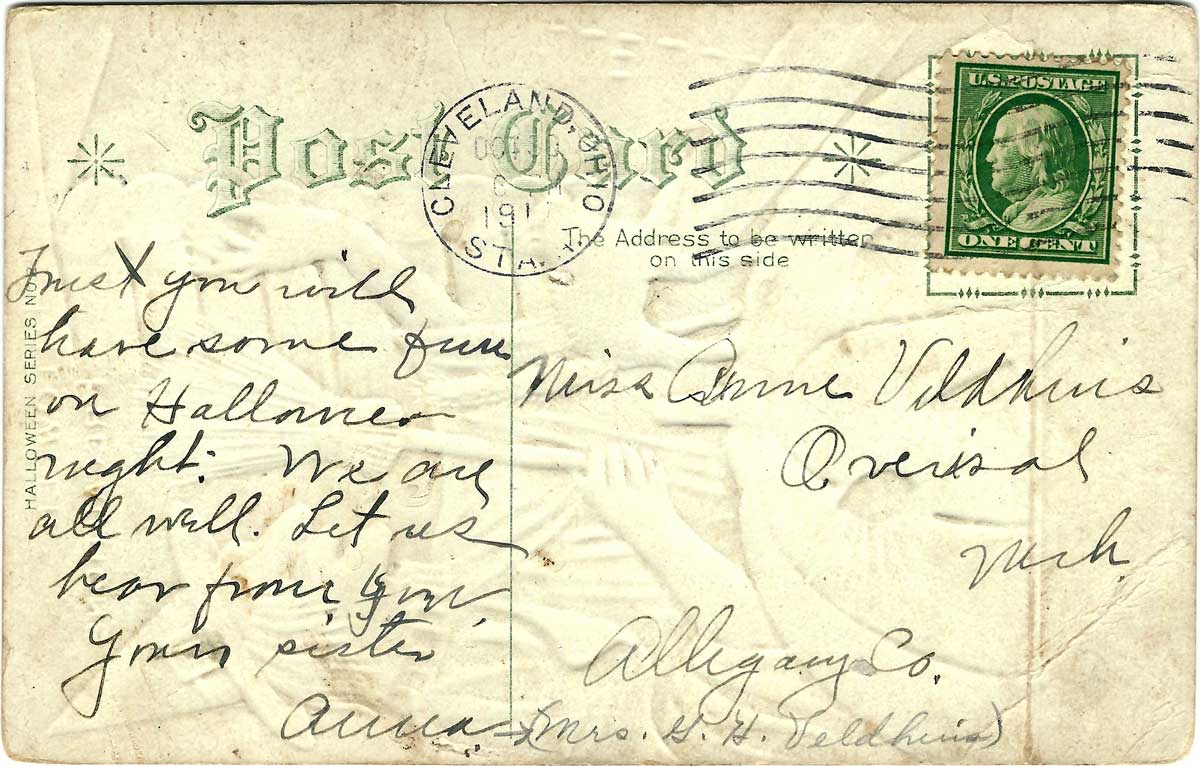 Post Card
CLEVELAND, OHIO
OCT
191
STA.
U.S. POSTAGE
ONE CENT
The Address to be written
on this side
HALLOWEEN SERIES NO
Trust you will
have some fun
on Hallowe'en
night. We are
all well. Let us
hear from you.
Your sister
Anna
Miss Anne Veldhuis
Overisel
Mich
Allegany Co.
(Mrs. G. H. Veldhuis)